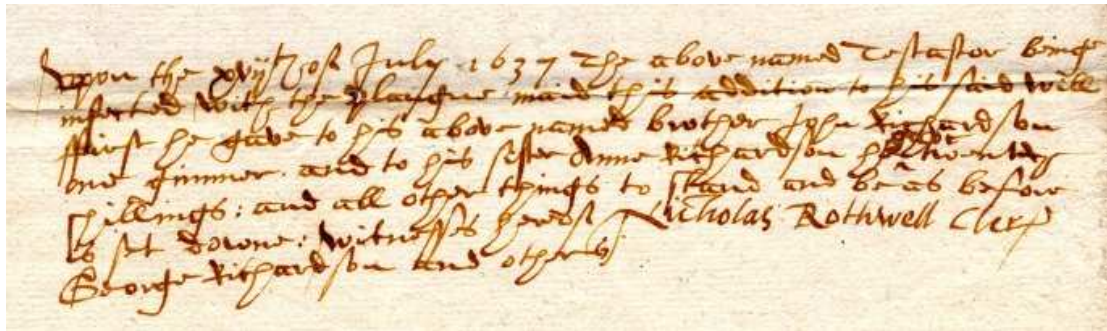 Vppon the xvijth of July 1637 The above named Testator beinge
infected with the Plaugue maid this addition to his said will
ffirst he gave to his above named brother John Richardson
one gimmer. and to his sister Anne Richardson twentey
shillings: and all other things to stand and be as before
is set downe: witnesses hereof Nicholas Rothwell Clerk
George Richardson and others